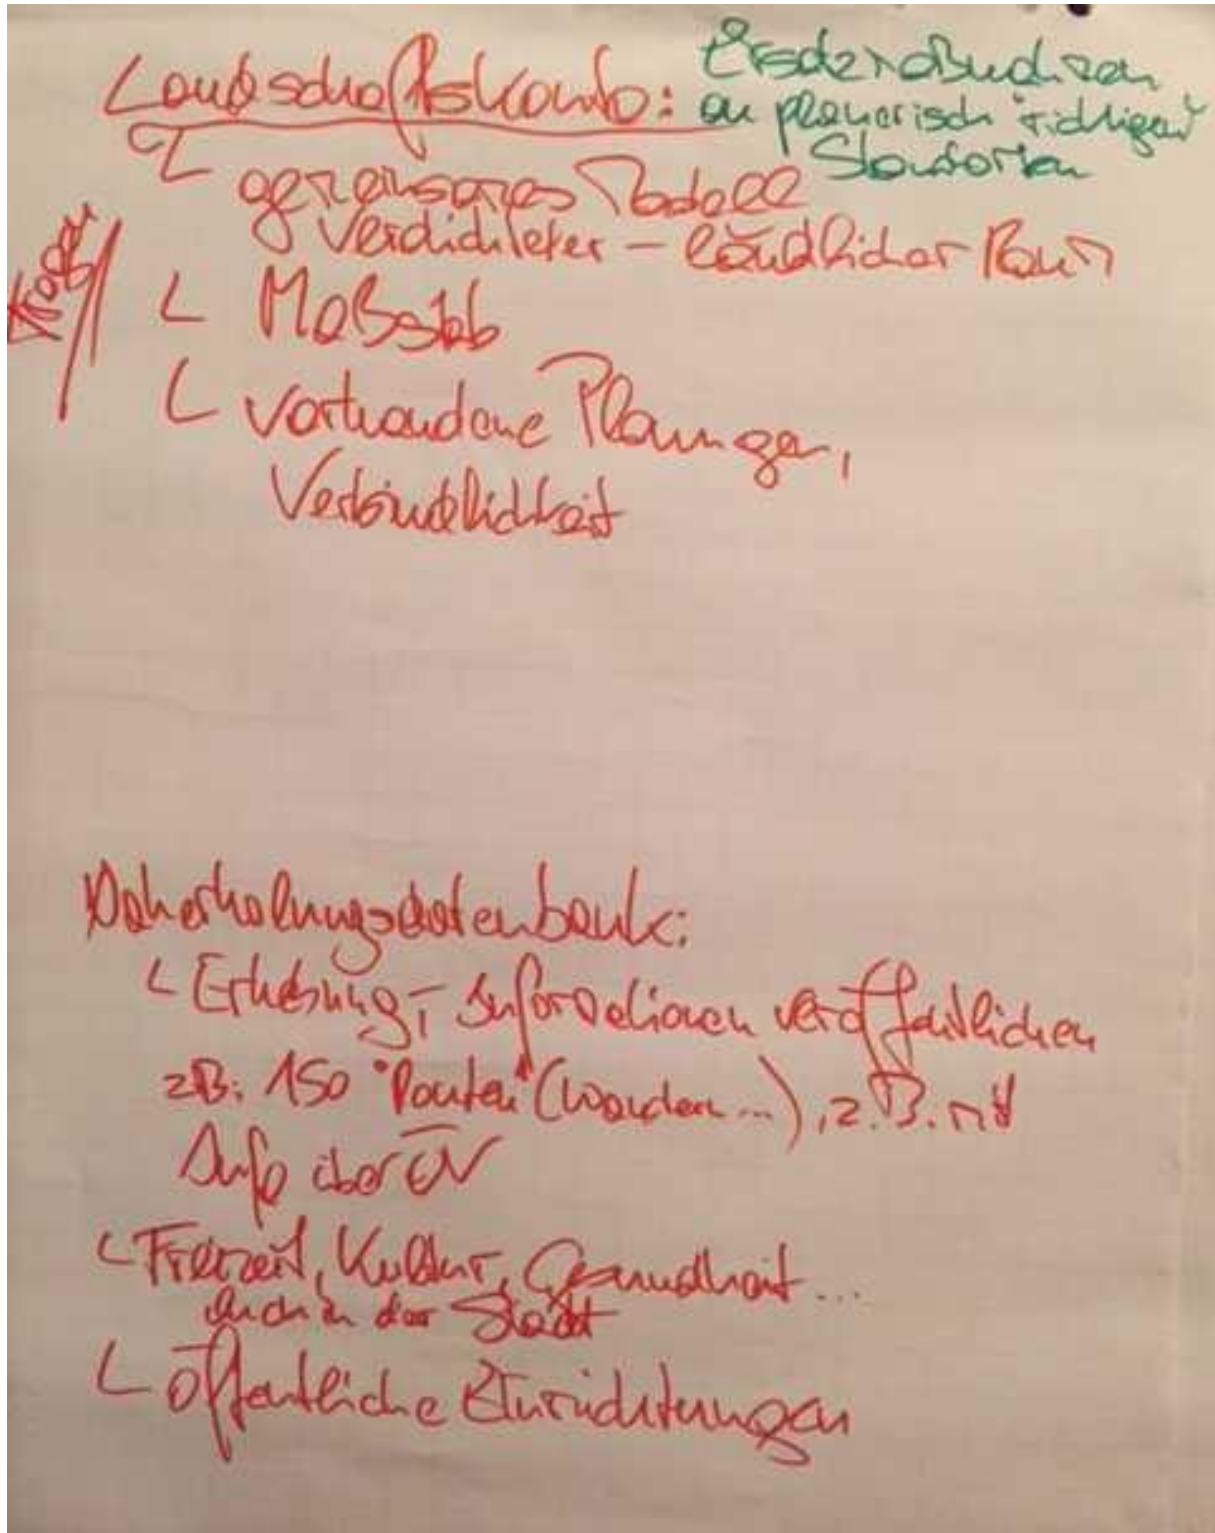 Landschaftskonto:
Ersatzmaßnahmen
an planerisch "richtigen"
Standorten
gemeinsames Modell
verdichteter – ländlicher Raum
Träger
Maßstab
vorhandene Planungen,
Verbindlichkeit
Naherholungsdatenbank:
Erhebung, Informationen veröffentlichen
zB: 150 "Routen" (Wandern...), z.B. mit
Info über ÖV
Freizeit, Kultur, Gesundheit...
auch in der Stadt
öffentliche Einrichtungen